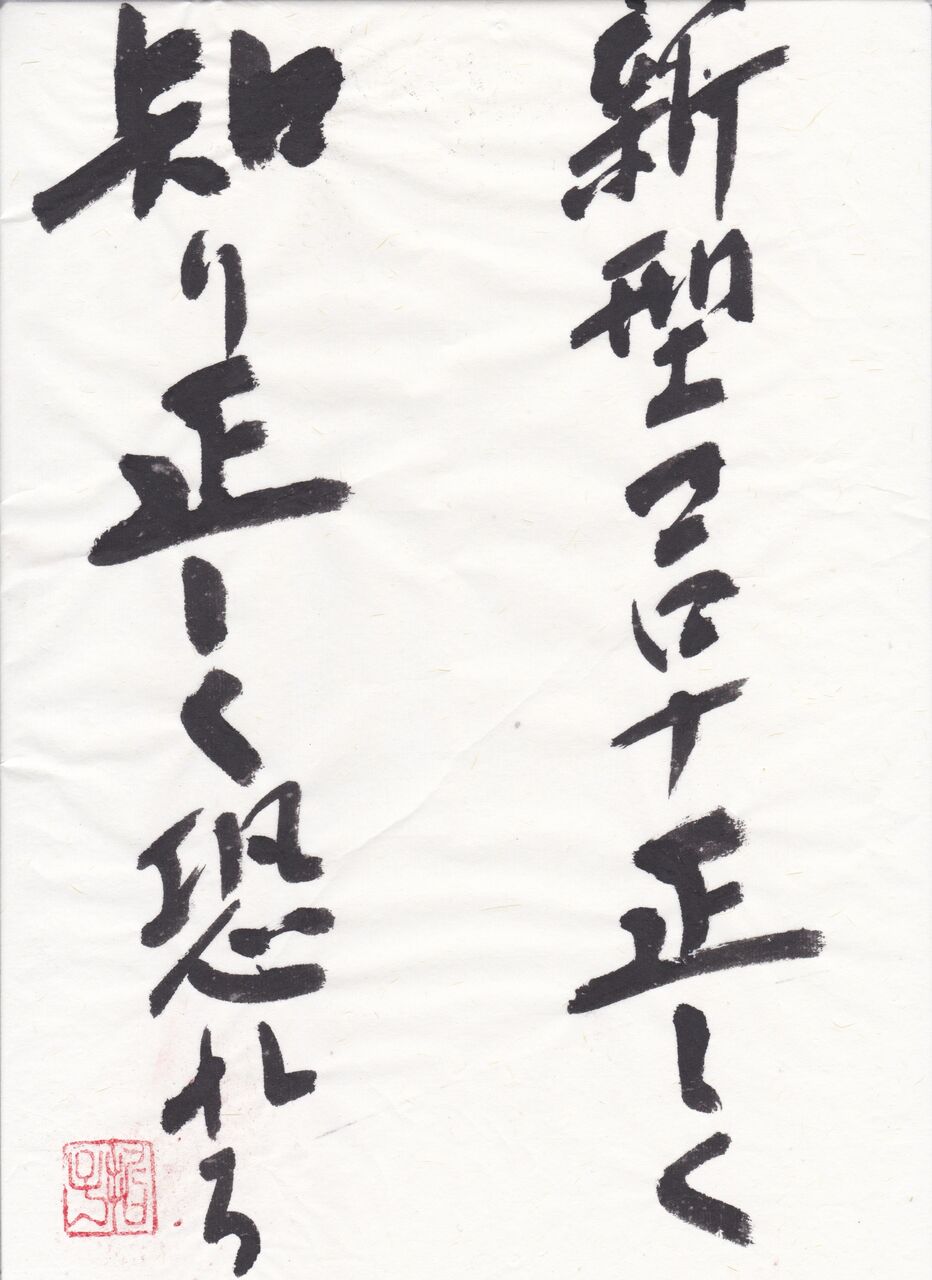 新型コロナ正しく
知り正しく恐れる